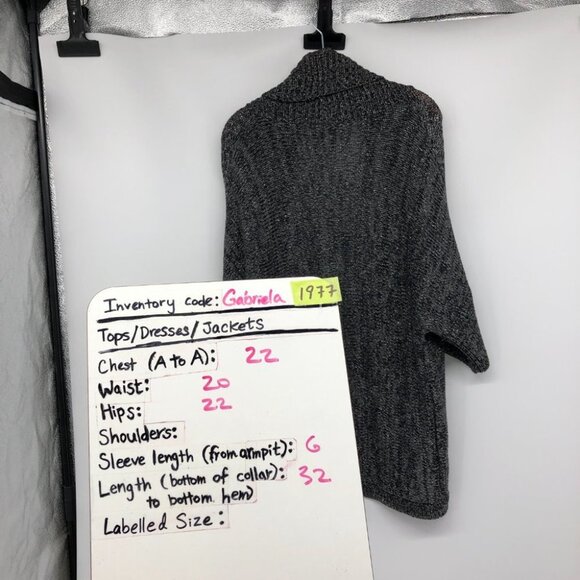 Inventory code: Gabriela 1977
Tops/Dresses/Jackets
Chest (A to A): 22
Waist: 20
Hips: 22
Shoulders:
Sleeve length (from armpit): 6
Length (bottom of collar): 32
to bottom hem)
Labelled Size: